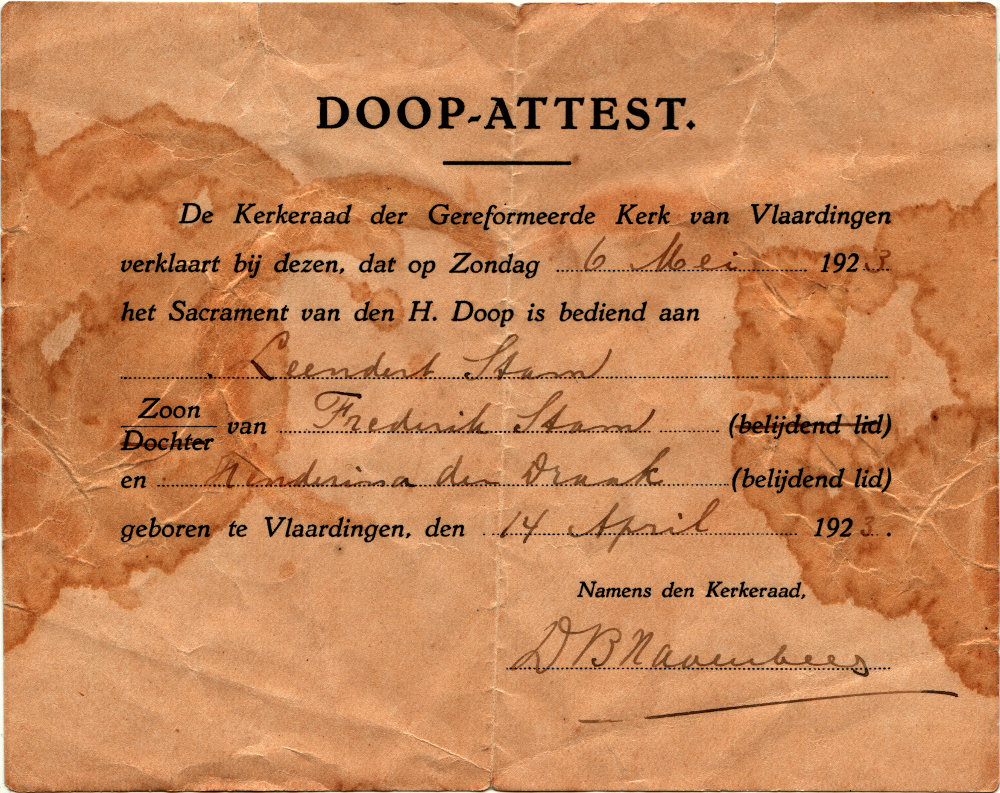 DOOP-ATTEST.
De Kerkeraad der Gereformeerde Kerk van Vlaardingen
verklaart bij dezen, dat op Zondag 6 Mei 1923
het Sacrament van den H. Doop is bediend aan
Leendert Stam
Zoon
Dochter van Frederik Stam (belijdend lid)
en Henderina den Draak (belijdend lid)
geboren te Vlaardingen, den 14 April 1923.
Namens den Kerkeraad,
D B